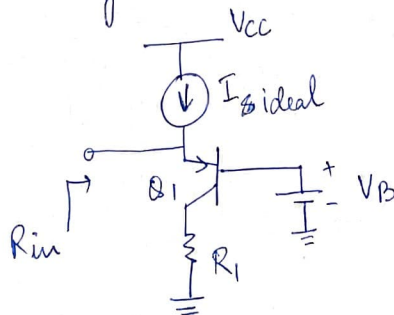 Vcc
I s ideal
Q1
+
VB
-
Rin
R1